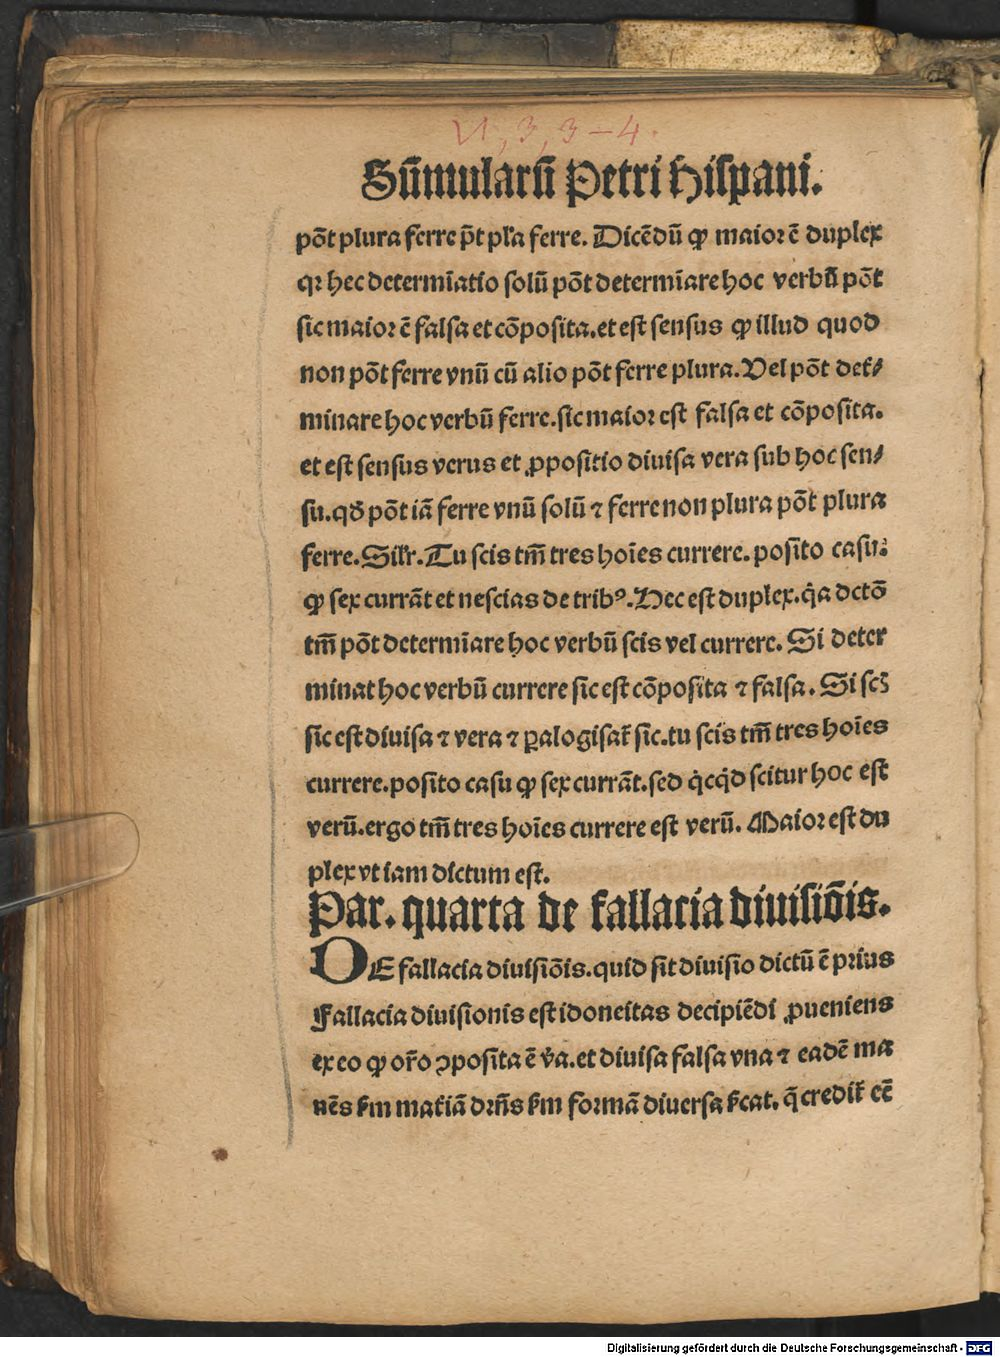 VI, 3, 3-4.
Sūmularū Petri hispani.
põt plura ferre p̃t pl'a ferre. Dicẽdū ꝙ maior ẽ duplex
qr hec determīatio solū põt determīare hoc verbū põt
sic maior ẽ falsa et cõposita. et est sensus ꝙ illud quod
non põt ferre vnū cū alio põt ferre plura. Vel põt det̃/
minare hoc verbū ferre. sic maior est falsa et cõposita.
et est sensus verus et ꝓpositio diuisa vera sub hoc sen/
su. qđ põt iã ferre vnū solū ⁊ ferre non plura põt plura
ferre. Sil'r. Tu scis tm̃ tres hoīes currere. posito casu:
ꝙ sex currãt et nescias de tribꝰ. Hec est duplex. q̇a dctõ
tm̃ põt determīare hoc verbū scis vel currere. Si deter
minat hoc verbū currere sic est cõposita ⁊ falsa. Si scꝫ
sic est diuisa ⁊ vera ⁊ ꝑalogisat̃ sic. tu scis tm̃ tres hoīes
currere. posito casu ꝙ sex currãt. sed q̇cq̇d scitur hoc est
verū. ergo tm̃ tres hoīes currere est verū. Maior est du
plex vt iam dictum est.
Par. quarta de fallacia diuisiõis.
DE fallacia diuisiõis. quid sit diuisio dictū ẽ prius
Fallacia diuisionis est idoneitas decipiẽdi ꝓueniens
ex eo ꝙ or̃o ꝯposita ẽ v̉a. et diuisa falsa vna ⁊ eadẽ ma
nẽs ẜm mat̃iã drñs ẜm formã diuersa ẜcat. q̃ credit̃ eẽ
Digitalisierung gefördert durch die Deutsche Forschungsgemeinschaft - DFG